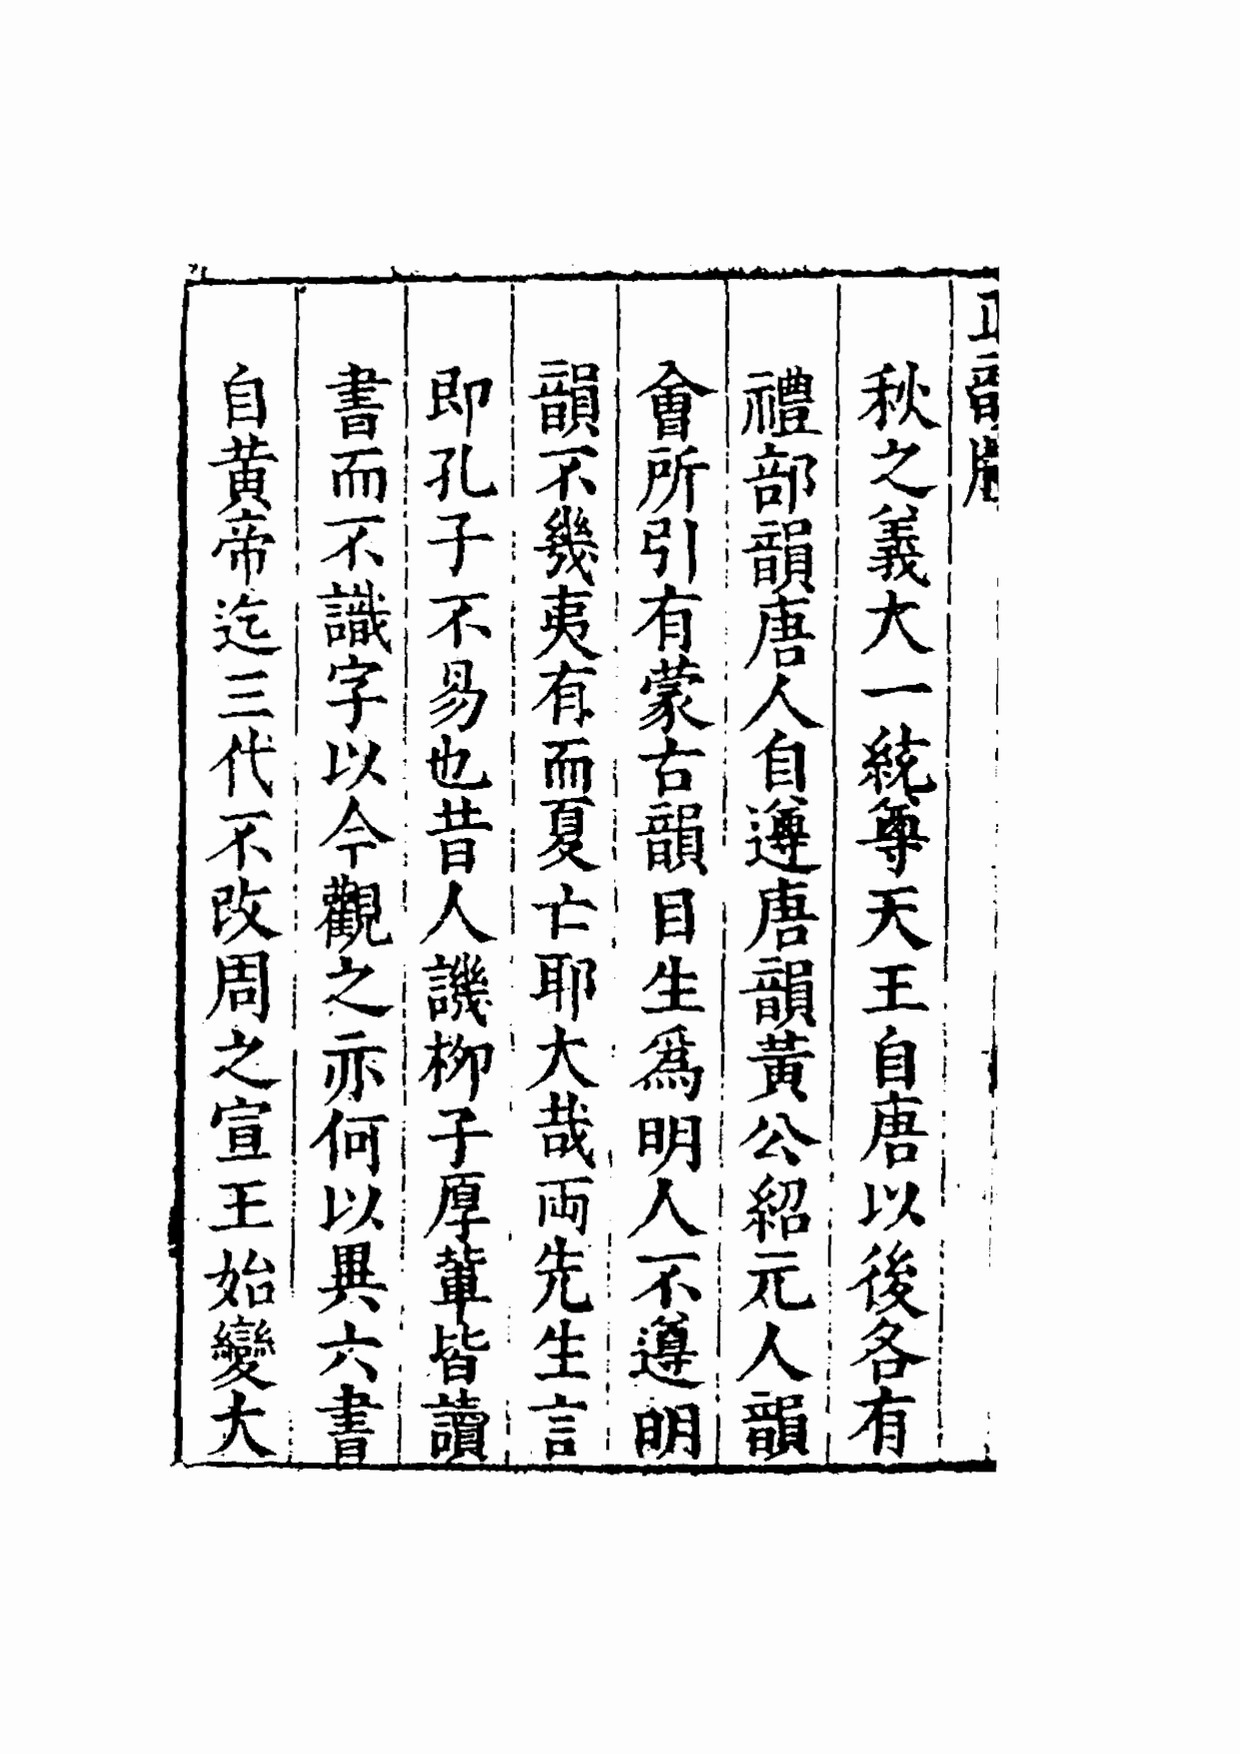 正韻牋
秋之義大一統尊天王自唐以後各有
禮部韻唐人自遵唐韻黃公紹元人韻
會所引有蒙古韻目生爲明人不遵明
韻不幾夷有而夏亡耶大哉両先生言
即孔子不易也昔人譏栁子厚輩皆讀
書而不識字以今觀之亦何以異六書
自黃帝迄三代不改周之宣王始變大